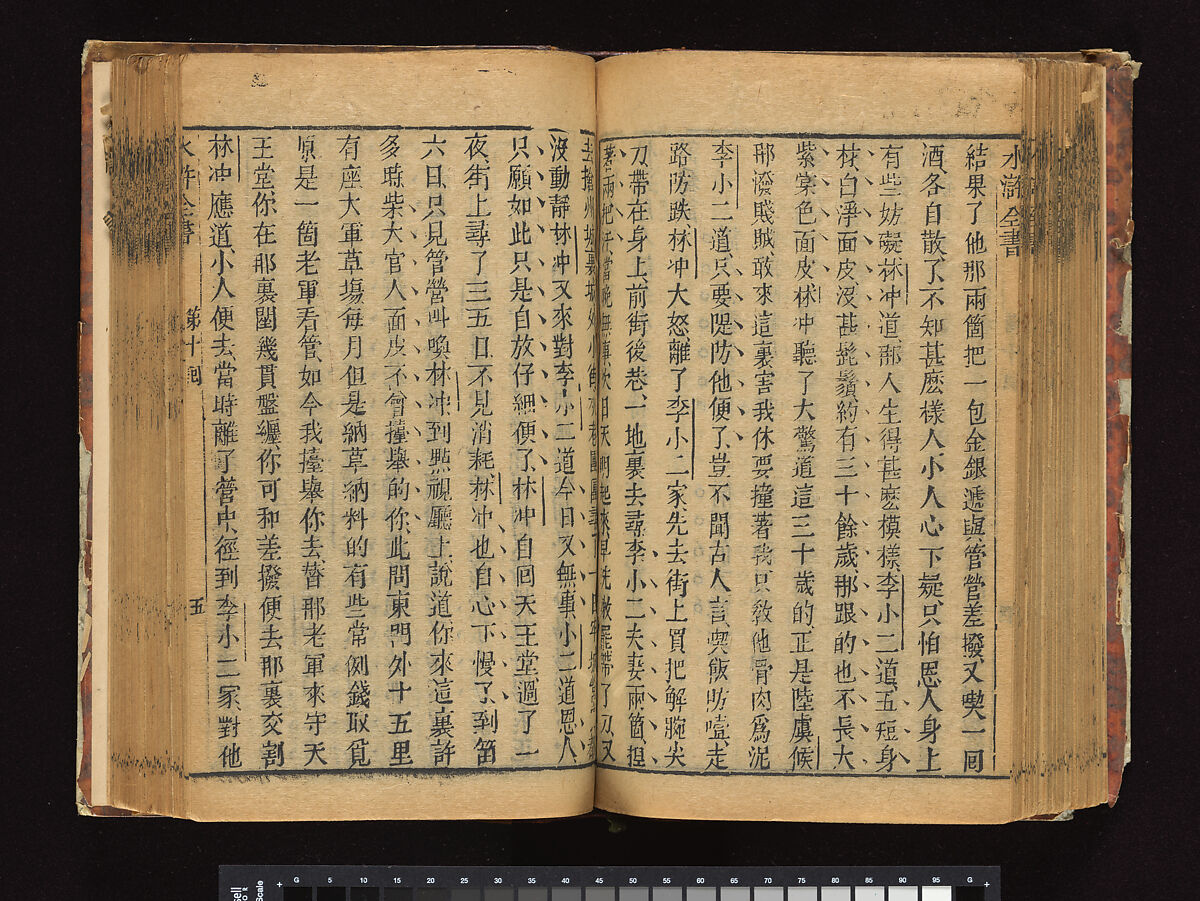 水滸全書
結果了他那兩箇把一包金銀遞與管營差撥又喫一回
酒各自散了不知甚麽樣人小人心下疑只怕恩人身上
有些妨礙林冲道那人生得甚麽模樣李小二道五短身
材白淨面皮沒甚髭鬚約有三十餘歲那跟的也不長大
紫棠色面皮林冲聽了大驚道這三十歲的正是陸虞候
那潑賤賊敢來這裏害我休要撞著我只教他骨肉爲泥
李小二道只要隄防他便了豈不聞古人言喫飯防噎走
路防跌林冲大怒離了李小二家先去街上買把解腕尖
刀帶在身上前街後巷一地裏去尋李小二夫妻兩箇捏
著兩把汗當晚無事次日天明起來早洗漱罷帶了刀又
去滄州城裏城外小街夾巷團團尋了一日牢城營裏都
沒動靜林冲又來對李小二道今日又無事小二道恩人
只願如此只是自放仔細便了林冲自回天王堂過了一
夜街上尋了三五日不見消耗林冲也自心下慢了到第
六日只見管營叫喚林冲到點視廳上說道你來這裏許
多時柴大官人面皮不曾擡舉的你此間東門外十五里
有座大軍草塲每月但是納草納料的有些常例錢取覓
原是一箇老軍看管如今我擡舉你去替那老軍來守天
王堂你在那裏閣幾貫盤纏你可和差撥便去那裏交割
林冲應道小人便去當時離了營中徑到李小二家對他
水滸全書
第十回
五
G 5 10 15 20 25 30 35 40 45 50 55 60 65 70 75 80 85 90 95 G
Scale